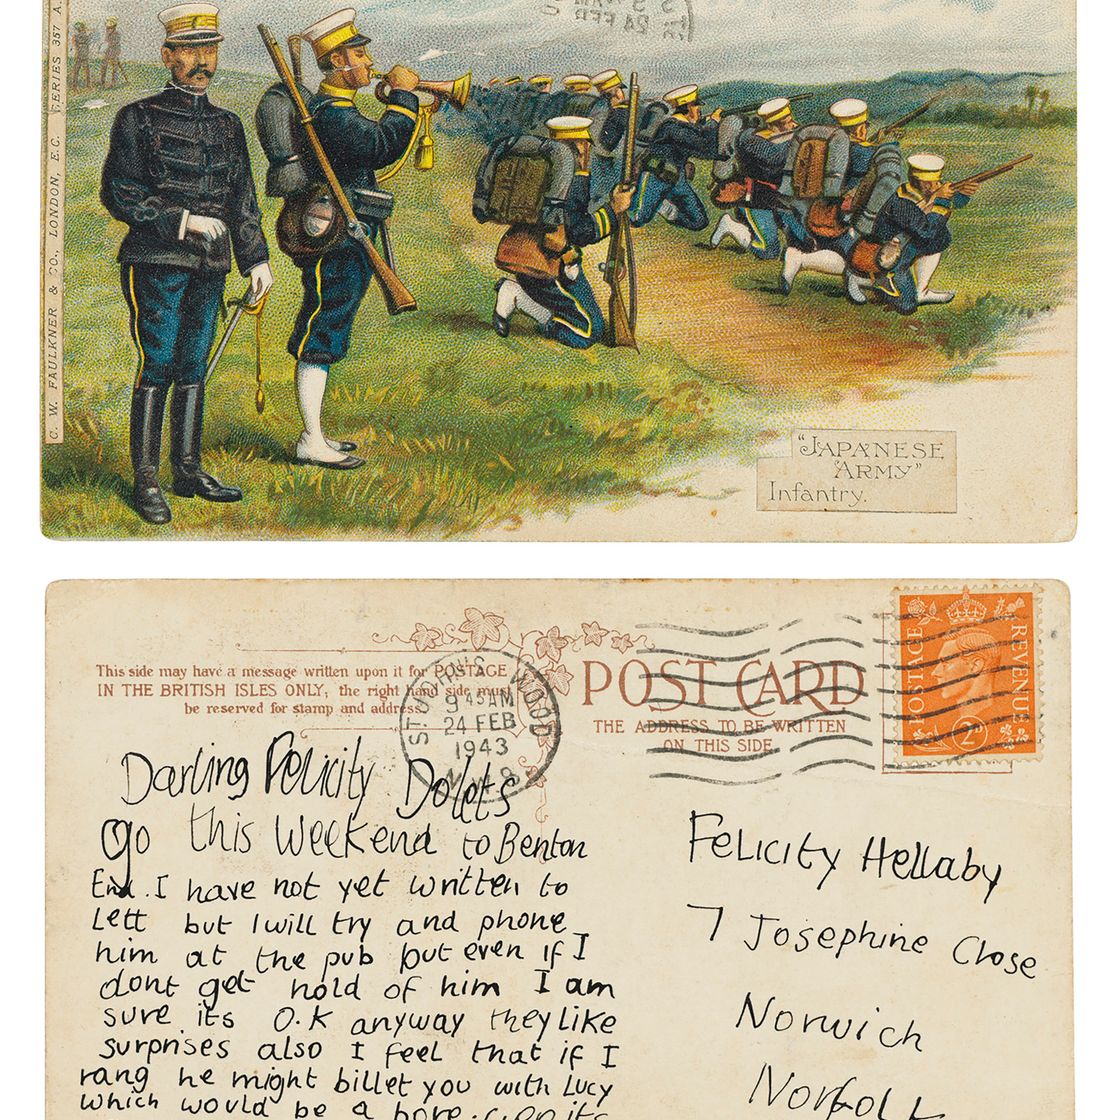 C. W. FAULKNER & CO., LONDON, E.C. SERIES 357 A.
24 FEB
"JAPANESE
ARMY"
Infantry.
This side may have a message written upon it for POSTAGE
IN THE BRITISH ISLES ONLY, the right hand side must
be reserved for stamp and address.
ST JOHN'S WOOD
9 45 AM
24 FEB
1943
N.W.8.
POST CARD
THE ADDRESS TO BE WRITTEN
ON THIS SIDE
POSTAGE
REVENUE
2D
Darling Felicity Do lets
go this weekend to Benton
End. I have not yet written to
Lett but I will try and phone
him at the pub but even if I
dont get hold of him I am
sure its O.K anyway they like
surprises also I feel that if I
rang he might billet you with Lucy
which would be a bore.
Felicity Hellaby
7 Josephine Close
Norwich
Norfolk